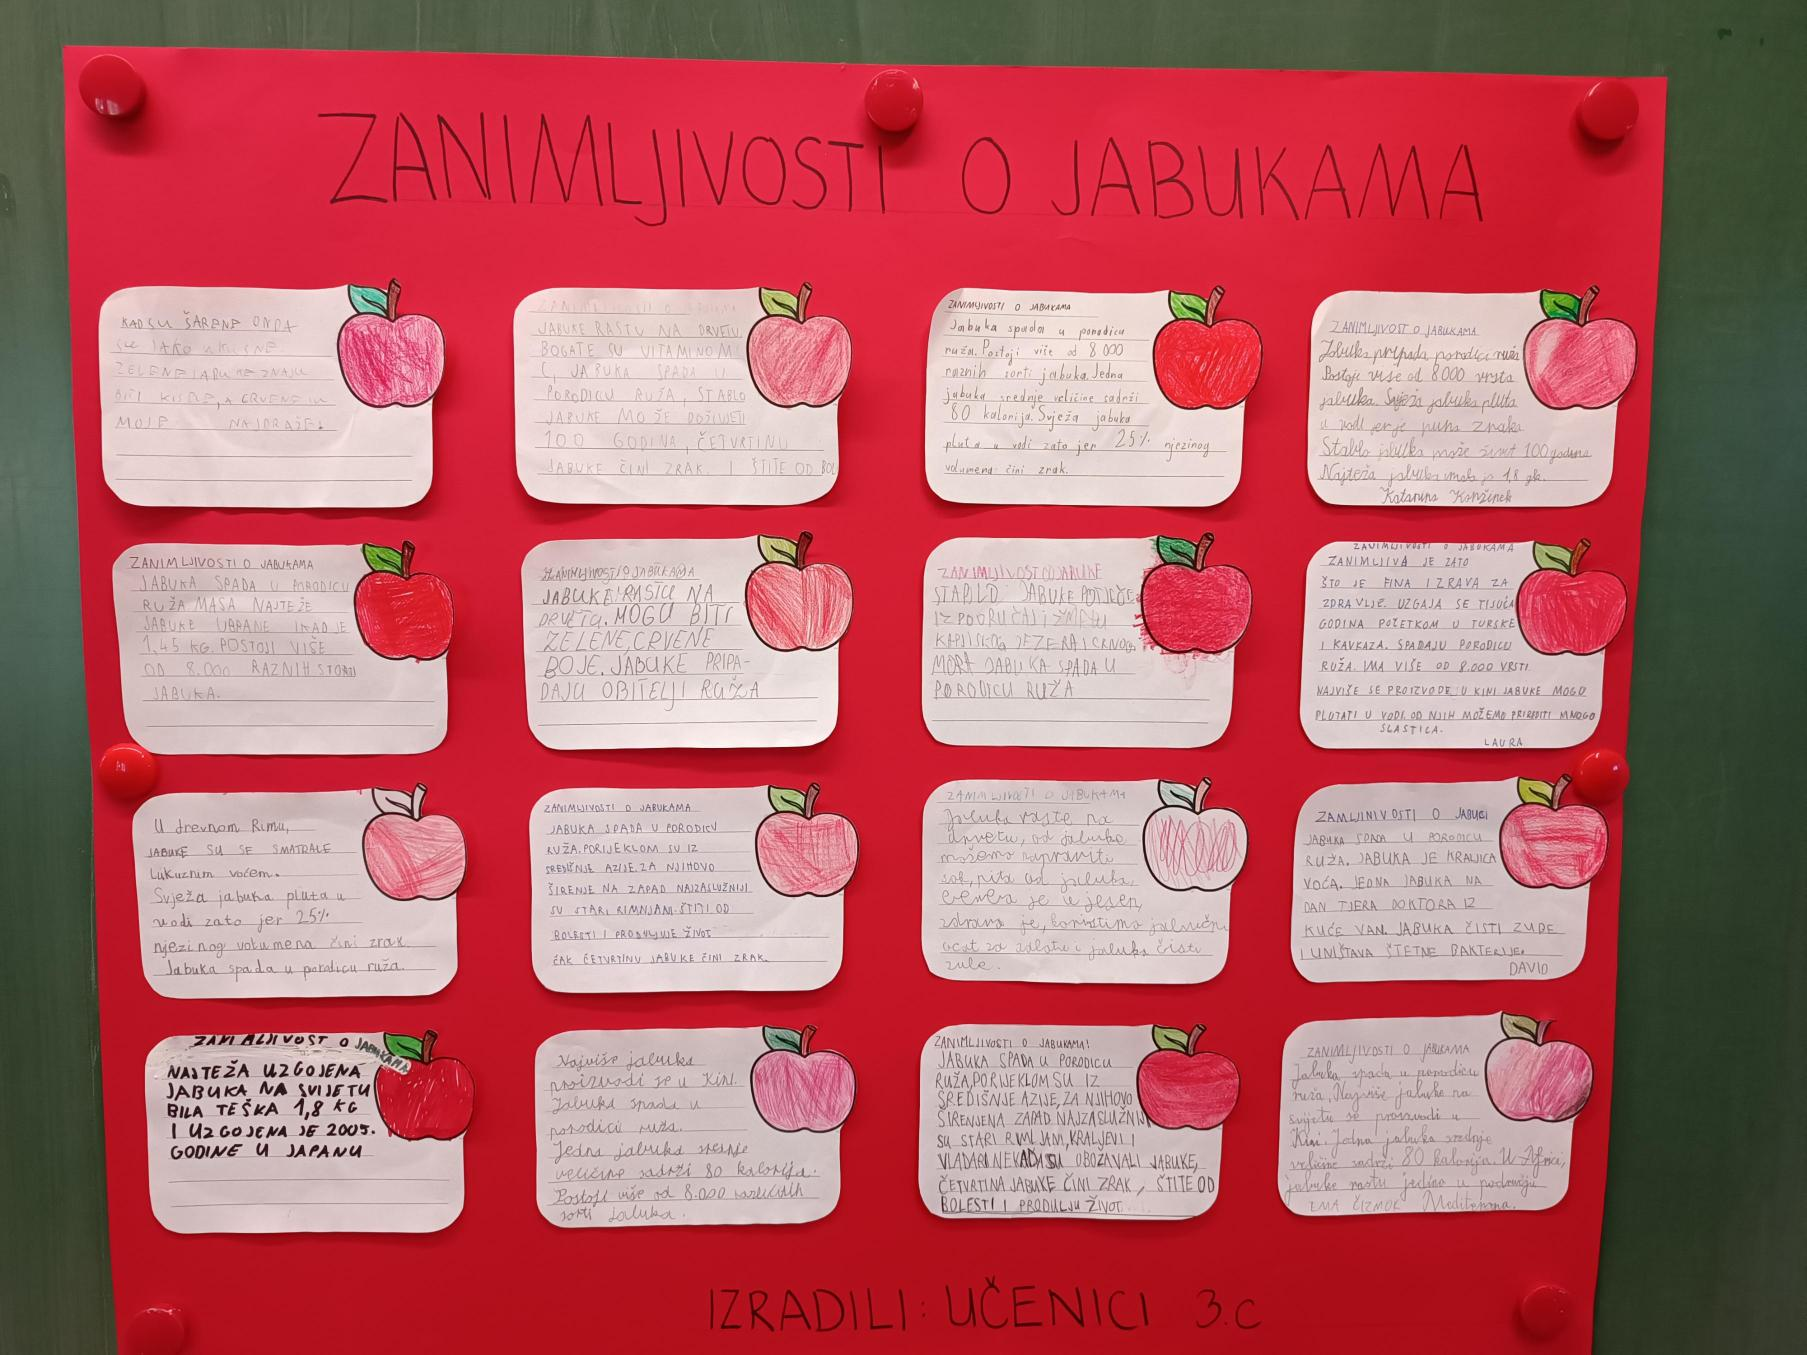 ZANIMLJIVOSTI O JABUKAMA
KAD SU ŠARENE ONDA
SU JAKO UKUSNE.
ZELENE JABUKE ZNAJU
BITI KISELE, A CRVENE SU
MOJE NAJDRAŽE!
ZANIMLJIVOSTI O JABUKAMA
JABUKE RASTU NA DRVETU,
BOGATE SU VITAMINOM
C, JABUKA SPADA U
PORODICU RUŽA, STABLO
JABUKE MOŽE DOŽIVJETI
100 GODINA, ČETVRTINU
JABUKE ČINI ZRAK. I ŠTITE OD BOL
ZANIMLJIVOSTI O JABUKAMA
Jabuka spada u porodicu
ruža. Postoji više od 8 000
raznih sorti jabuka. Jedna
jabuka srednje veličine sadrži
80 kalorija. Svježa jabuka
pluta u vodi zato jer 25% njezinog
volumena čini zrak.
ZANIMLJIVOST O JABUKAMA
Jabuka pripada porodici ruža
Postoji više od 8000 vrsta
jabuka. Svježa jabuka pluta
u vodi jer je puna zraka
Stablo jabuka može živit 100 godina
Najteža jabuka imala je 1,8 gk.
Katarina
ZANIMLJIVOSTI O JABUKAMA
JABUKA SPADA U PORODICU
RUŽA MASA NAJTEŽE
JABUKE UBRANE IKAD JE
1,45 KG. POSTOJI VIŠE
OD 8.000 RAZNIH
JABUKA.
ZANIMLJIVOSTI O JABUKAMA
JABUKE RASTU NA
DRVETU. MOGU BITI
ZELENE, CRVENE
BOJE. JABUKE PRIPA-
DAJU OBITELJI RUŽA
ZANIMLJIVOSTI O JABUKE
STABLO JABUKE POTJEČE
IZ PODRUČJA IZMEĐU
KAPIJSKOG JEZERA I CRNOG
MORA JABUKA SPADA U
PORODICU RUŽA
ZANIMLJIVOSTI O JABUKAMA
ZANIMLJIVA JE ZATO
ŠTO JE FINA I ZRAVA ZA
ZDRAVLJE. UZGAJA SE TISUĆA
GODINA POČETKOM U TURSKE
I KAVKAZA. SPADAJU PORODICU
RUŽA. IMA VIŠE OD 8.000 VRSTI.
NAJVIŠE SE PROIZVODE U KINI JABUKE MOGU
PLUTATI U VODI. OD NJIH MOŽEMO PRIREDITI MNOGO
SLASTICA.
LAURA
U drevnom Rimu,
JABUKE SU SE SMATRALE
Lukuznim voćem.
Svježa jabuka pluta u
vodi zato jer 25%
njezinog volumena čini zrak.
Jabuka spada u porodicu ruža.
ZANIMLJIVOSTI O JABUKAMA
JABUKA SPADA U PORODICU
RUŽA. PORIJEKLOM SU IZ
SREDIŠNJE AZIJE. ZA NJIHOVO
ŠIRENJE NA ZAPAD NAJZASLUŽNIJI
SU STARI RIMNJANI. ŠTITI OD
BOLESTI I PRODULJUJE ŽIVOT
ČAK ČETVRTINU JABUKE ČINI ZRAK.
ZANIMLJIVOSTI O JABUKAMA
Jabuka raste na
drvetu, od jabuka
možemo napraviti
sok, pita od jabuka,
crvena je u jesen,
zdrava je, koristimo jabučni
ocat za salatu i jabuka čisti
zube.
ZAMLJINIVOSTI O JABUCI
JABUKA SPADA U PORODICU
RUŽA. JABUKA JE KRALJICA
VOĆA. JEDNA JABUKA NA
DAN TJERA DOKTORA IZ
KUĆE VAN. JABUKA ČISTI ZUBE
I UNIŠTAVA ŠTETNE BAKTERIJE.
DAVID
ZANIMLJIVOST O JABUKAMA
NAJTEŽA UZGOJENA
JABUKA NA SVIJETU
BILA TEŠKA 1,8 KG
I UZGOJENA JE 2005.
GODINE U JAPANU
Najviše jabuka
proizvodi se u Kini.
Jabuka spada u
porodicu ruža.
Jedna jabuka srednje
veličine sadrži 80 kalorija.
Postoji više od 8.000 različitih
sorti jabuka.
ZANIMLJIVOSTI O JABUKAMA!
JABUKA SPADA U PORODICU
RUŽA, PORIJEKLOM SU IZ
SREDIŠNJE AZIJE, ZA NJIHOVO
ŠIRENJE NA ZAPAD NAJZASLUŽNIJI
SU STARI RIMLJANI, KRALJEVI I
VLADARI NEKADA SU OBOŽAVALI JABUKE,
ČETVRTINA JABUKE ČINI ZRAK, ŠTITE OD
BOLESTI I PRODULJU ŽIVOT
ZANIMLJIVOSTI O JABUKAMA
Jabuka spada u porodicu
ruža. Najviše jabuke na
svijetu se proizvodi u
Kini. Jedna jabuka srednje
veličine sadrži 80 kalorija. U Africi,
jabuke rastu jedino u području
Mediterana.
EMA ČIZMOK
IZRADILI: UČENICI 3.C